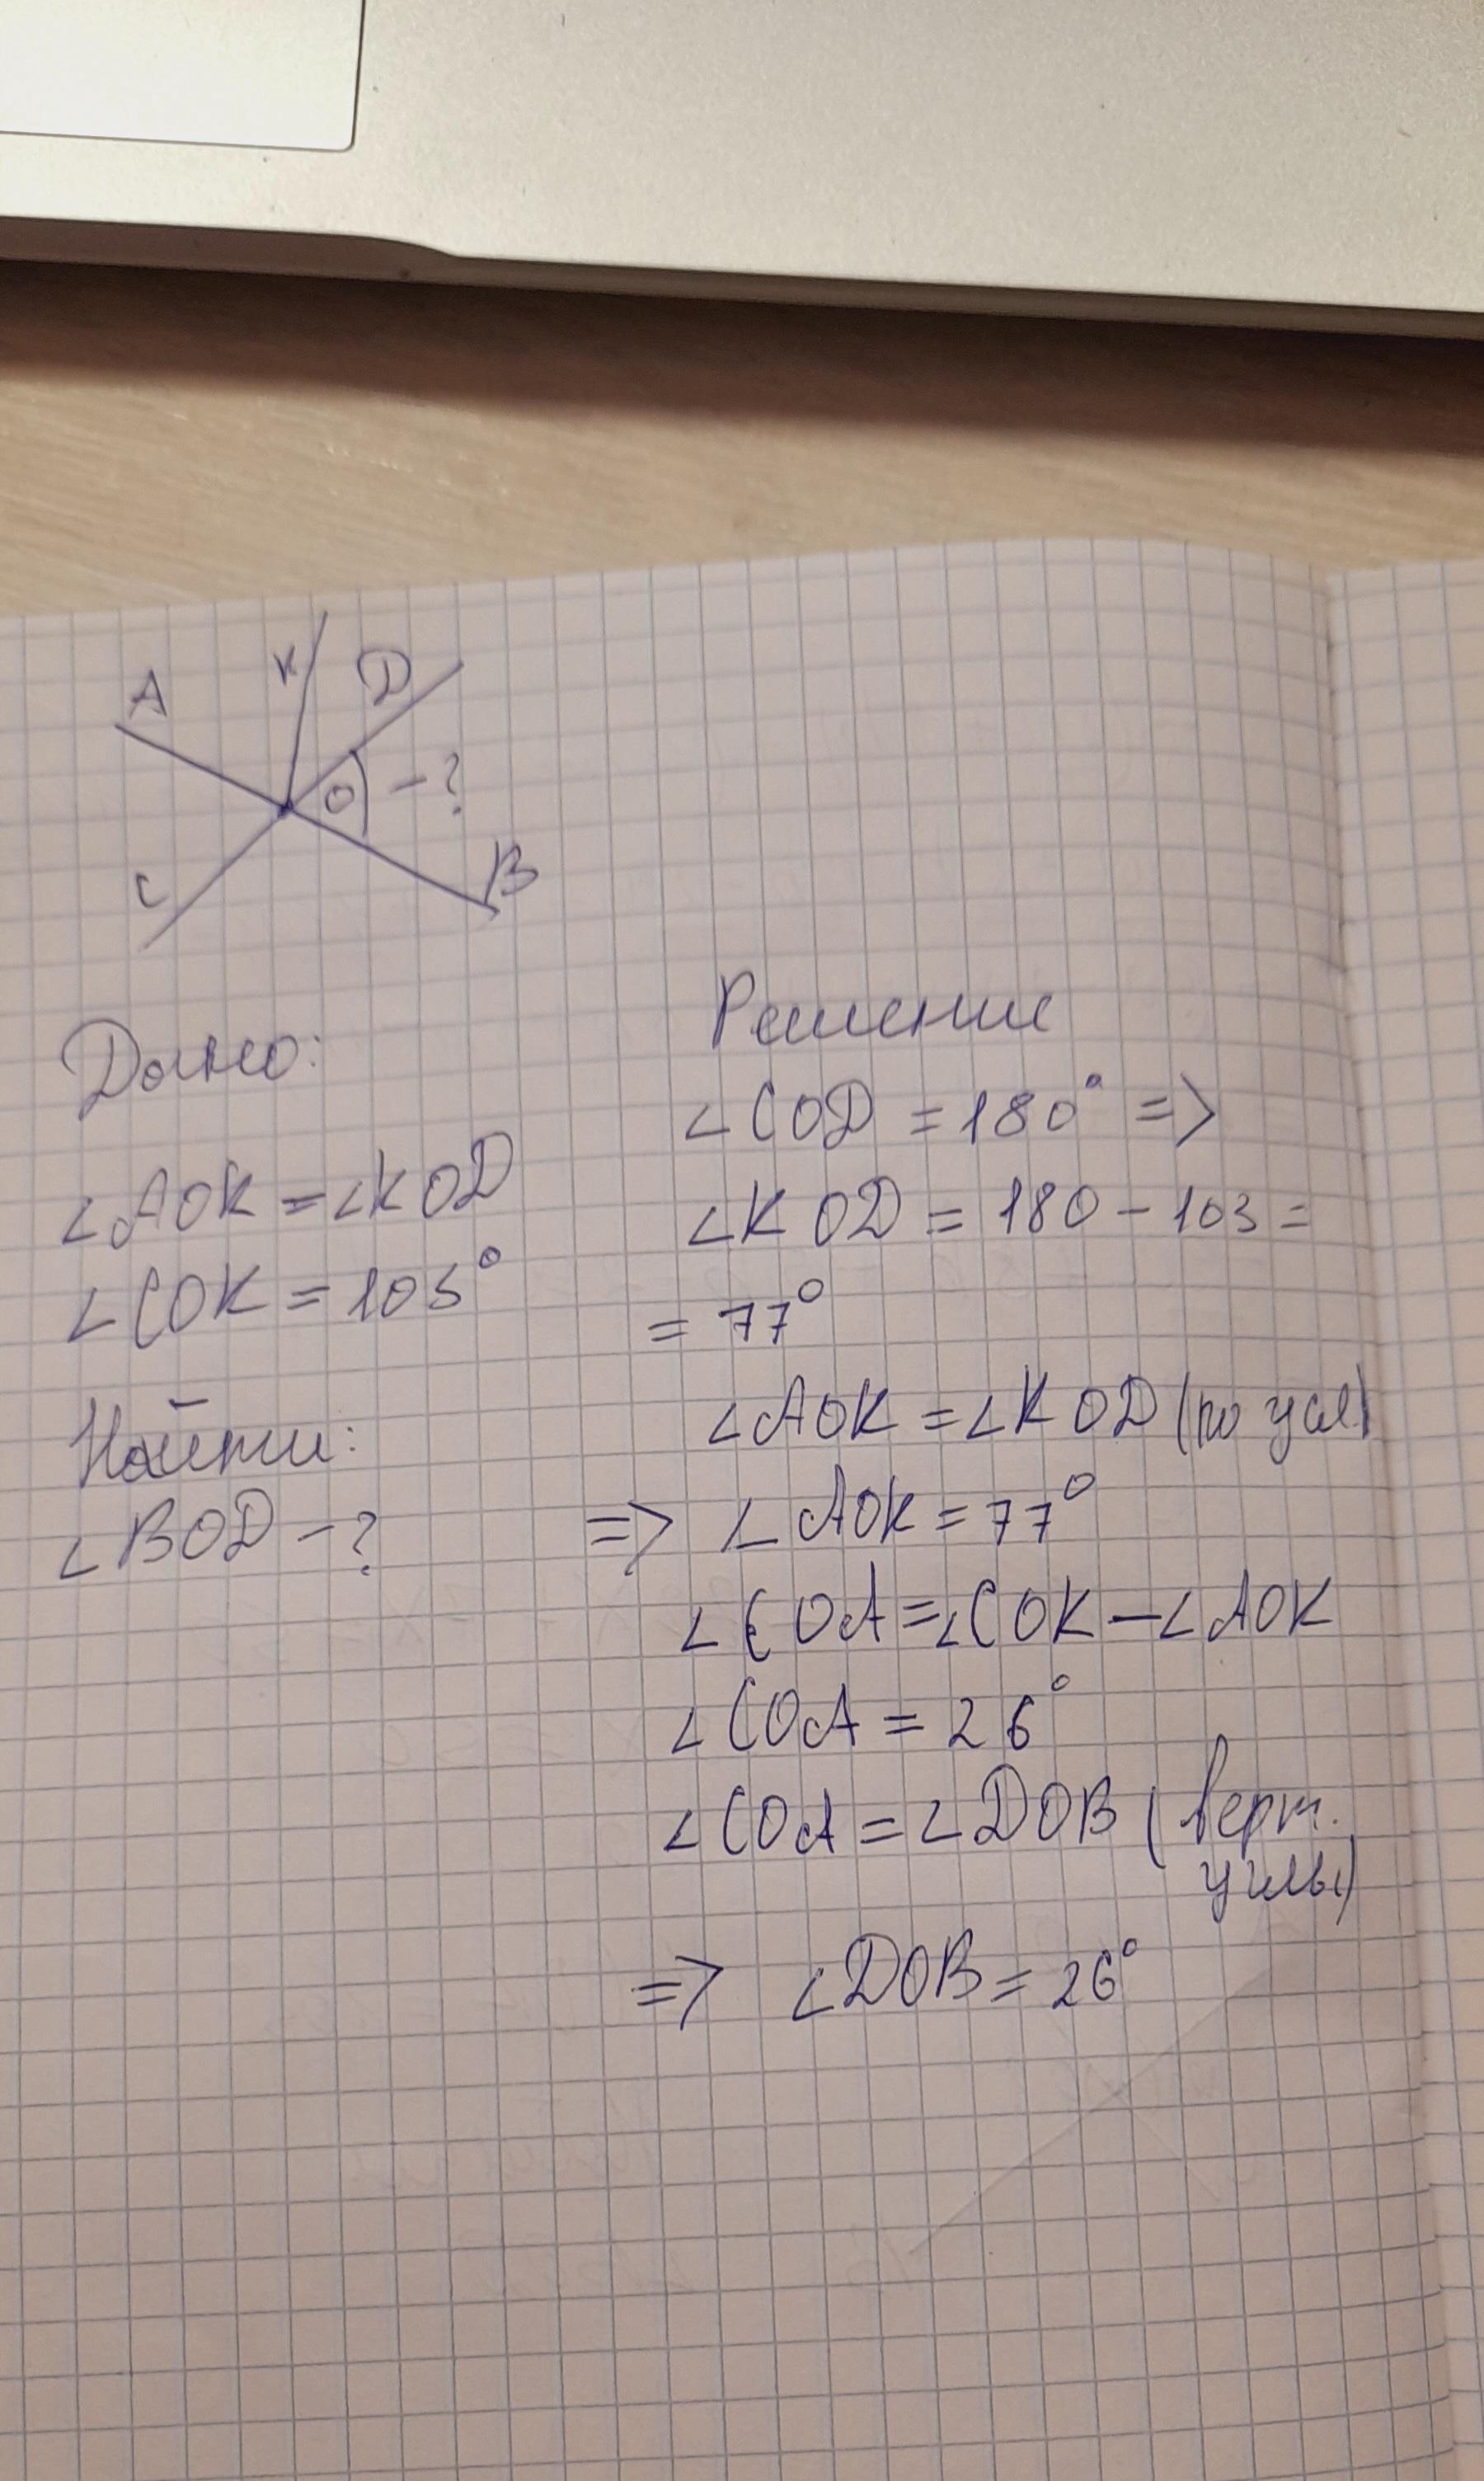 A
K
D
O
- ?
C
B
Дано:
∠AOK = ∠KOD
∠COK = 103°
Найти:
∠BOD - ?
Решение
∠COD = 180° =>
∠KOD = 180 - 103 =
= 77°
∠AOK = ∠KOD (по усл)
=> ∠AOK = 77°
∠COA = ∠COK - ∠AOK
∠COA = 26°
∠COA = ∠DOB (верт.
углы)
=> ∠DOB = 26°